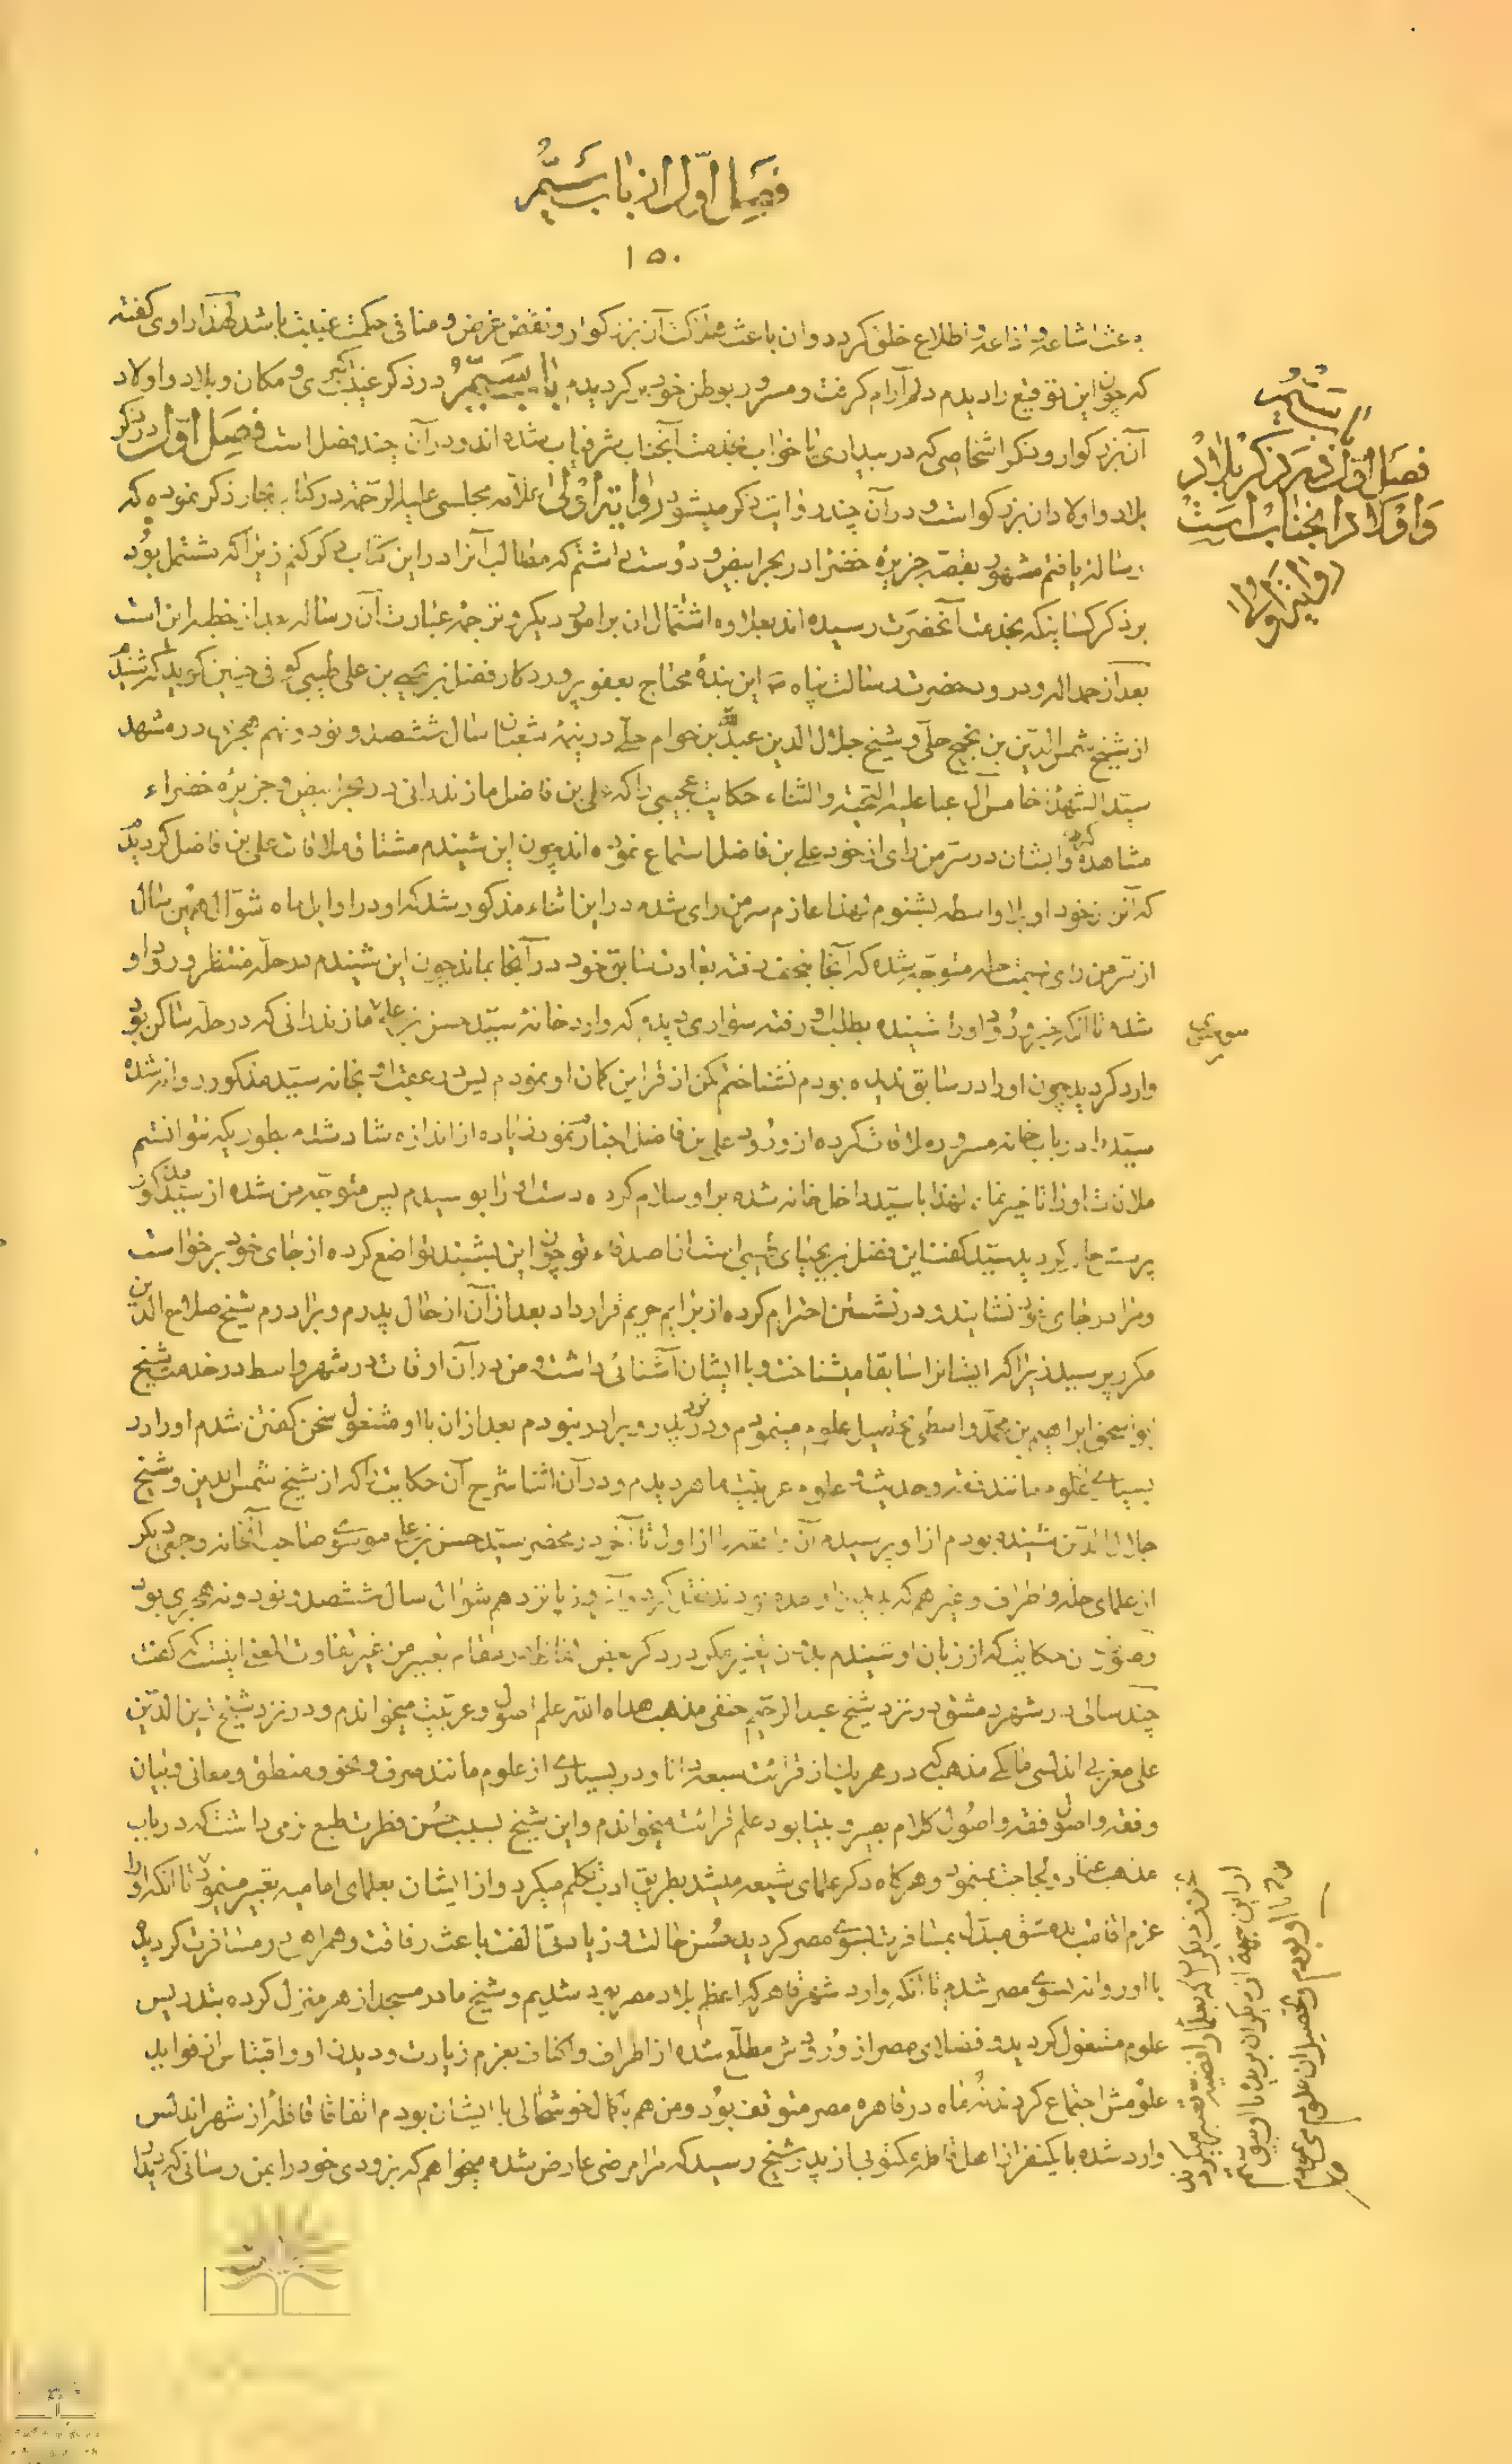 فصل اول از باب ششم
١٥٠
باعث اشاعه و اذاعه و اطلاع خلق گردد و ان باعث آن بزرگوار و نقض غرض و منافی حکمت غیبت باشد لهذا راوی گفته
که چون این توقیع را دیدم دلم آرام گرفت و مسرور بوطن خود برگردیدم باب ششم در ذکر غیبت کبری و مکان و بلاد و اولاد
آن بزرگوار و ذکر اشخاصی که در بیداری یا خواب بخدمت آنجناب شرفیاب شده اند و در آن چند فصل است فصل اول در ذکر
بلاد و اولاد ان بزرگوار است و در آن چند روایت ذکر میشود روایت اولی علامه مجلسی علیه الرحمه در کتاب بحار ذکر نموده که
رساله یافتم مشهور بقصه جزیرهٔ خضرا در بحر ابیض و دوست داشتم که مطالب آنرا در این کتاب ذکر کنم زیرا که مشتمل بود
بر ذکر کسانیکه بخدمت آنحضرت رسیده اند بعلاوه اشتمال ان بر امور دیگر و ترجمهٔ عبارت آن رساله بعد از خطبه این است
بعد از حمد اله و درود حضرت رسالت پناه ص این بندهٔ محتاج بعفو پروردکار فضل بن یحیی بن علی طیبی کوفی چنین گوید که شنیدم
از شیخ شمس الدین بن نجیح حلی و شیخ جلال الدین عبدالله بن حوام حلی در نیمهٔ شعبان سال ششصد و نود و نهم هجری در مشهد
سید الشهدا خامس آل عبا علیه التحیة و الثناء حکایت عجیبی را که علی بن فاضل مازندرانی در بحر ابیض و جزیرهٔ خضراء
مشاهده کرده و ایشان در سرمن رای از خود علی بن فاضل استماع نموده اند چون این شنیدم مشتاق ملاقات علی بن فاضل گردیدم
که از خود او بلا واسطه بشنوم لهذا عازم سرمن رای شده در این اثناء مذکور شد که او در اوایل ماه شوال همین سال
از سرمن رای بسمت حله متوجه شده که آنجا بنجف رفته بعادت سابق خود در آنجا بماند چون این شنیدم در حله منتظر ورود او
شده تا آنکه خبر ورود او را شنیده بطلب او رفته سواری دیدم که وارد خانهٔ سید حسن بن علی مازندرانی که در حله ساکن بود
وارد گردید چون او را در سابق ندیده بودم نشناختم لکن از قراین گمان او نمودم پس در عقب او بخانه سید مذکور روانه شده
سید را در باب خانه مسرور ملاقات کرده از ورود علی بن فاضل اخبارم نمود زیاده از اندازه شاد شده بطوریکه نتوانستم
ملاقات او را تاخیر نمایم لهذا با سید داخل خانه شده بر او سلام کرده دست او را بوسیدم پس متوجه من شده از سید مذکور
پرسش حالم گردید سید گفت این فضل بن یحیای طیبی است از اصدقاء تو چون این بشنید تواضع کرده از جای خود برخواست
و مرا در جای خود نشانیده و در نشستن احترام کرده از برایم حریم قرار داد بعد از آن از حال پدرم و برادرم شیخ صلاح الدین
مکرر پرسید زیرا که ایشانرا سابقا میشناخت و با ایشان آشنائی داشت و من در آن اوقات در شهر واسط در خدمت شیخ
ابو اسحق ابراهیم بن محمد واسطی تحصیل علوم مینمودم و در نزد پدر و برادر نبودم بعد از ان با او مشغول سخن گفتن شدم او را در
بسیاری علوم مانند فقه و حدیث و علوم عربیت ماهر دیدم و در آن اثنا شرح آن حکایت را که از شیخ شمس الدین و شیخ
جلال الدین شنیده بودم از او پرسیده آن واقعه را از اول تا آخر در محضر سید حسن بن علی موسوی صاحب آنخانه و جمعی دیگر
از علمای حله و اطراف و غیرهم که بدیدن او آمده بودند نقل کرد و آن روز یازدهم شوال سال ششصد و نود و نه هجری بود
و صورت ان حکایت که از زبان او شنیدم بدون تغییر مگر در ذکر بعض الفاظ در مقام تعبیر من غیر تفاوت المعنی اینست که گفت
چند سالی در شهر دمشق در نزد شیخ عبد الرحیم حنفی مذهب هداه الله علم اصول و عربیت میخواندم و در نزد شیخ زین الدین
علی مغربی اندلسی مالکی مذهب که در هر یک از قرائت سبعه دانا و در بسیاری از علوم مانند صرف و نحو و منطق و معانی و بیان
و فقه و اصول فقه و اصول کلام بصیر و بینا بود علم قرائت میخواندم و این شیخ بسبب حسن فطرت طبع نرمی داشت که در باب
مذهب عناد و لجاجت نمینمود و هرگاه ذکر علمای شیعه میشد بطریق ادب تکلم میکرد و از ایشان بعلمای امامیه تعبیر مینمود تا آنکه او را
عزم اقامت دمشق مبدل بمسافرت بسوی مصر گردید حسن حالت و زیادتی الفت باعث رفاقت و همراهی در مسافرت گردید
با او روانه بسوی مصر شدم تا آنکه وارد شهر قاهره که اعظم بلاد مصر بود شدیم و شیخ ما در مسجد ازهر منزل کرده بتدریس
علوم مشغول گردید و فضلای مصر از ورودش مطلع شده از اطراف و اکناف بعزم زیارت و دیدن او و اقتباس از فواید
علومش اجتماع کردند نه ماه در قاهره مصر متوقف بود و من هم با کمال خوشحالی با ایشان بودم اتفاقا قافلهٔ از شهر اندلس
وارد شده با یکنفر از اهل قافله مکتوبی از پدر شیخ رسید که مرا مرضی عارض شده میخواهم که بزودی خود را بمن رسانی که دیدار
باب ششم
فصل اول در ذکر بلاد
و اولاد آنجناب است
روایت اولی
موسوی
بخلاف دیگران که بعلماء رافضیه تعبیر میکردند
از این جهة از دیگران بریده با او پیوستم
و با او بودم و تحصیل ان علوم می نمودم